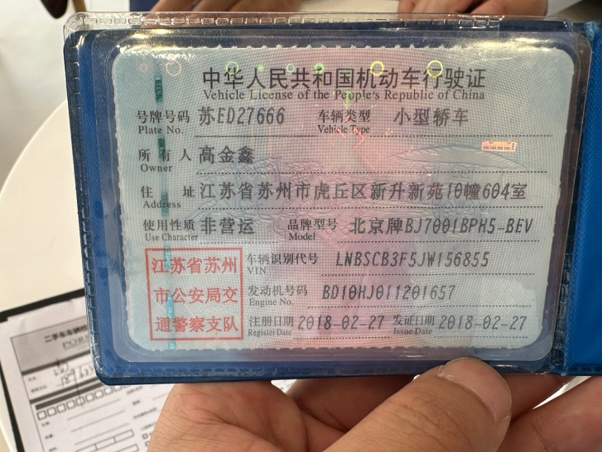 中华人民共和国机动车行驶证
Vehicle License of the People's Republic of China
号牌号码 苏ED27666 车辆类型 小型轿车
Plate No. Vehicle Type
所有人 高金鑫
Owner
住址 江苏省苏州市虎丘区新升新苑10幢604室
Address
使用性质 非营运 品牌型号 北京牌BJ7001BPH5-BEV
Use Character Model
江苏省苏州
市公安局交
通警察支队
车辆识别代号 LNBSCB3F5JW156855
VIN
发动机号码 BD10HJ011201657
Engine No.
注册日期 2018-02-27 发证日期 2018-02-27
Register Date Issue Date